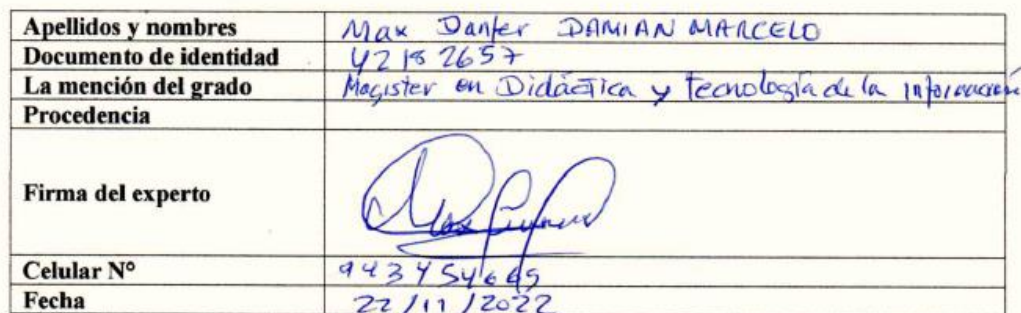 Apellidos y nombres Max Danfer DAMIAN MARCELO
Documento de identidad 42182657
La mención del grado Magister en Didáctica y Tecnología de la Información
Procedencia
Firma del experto
Celular N° 943454665
Fecha 22/11/2022